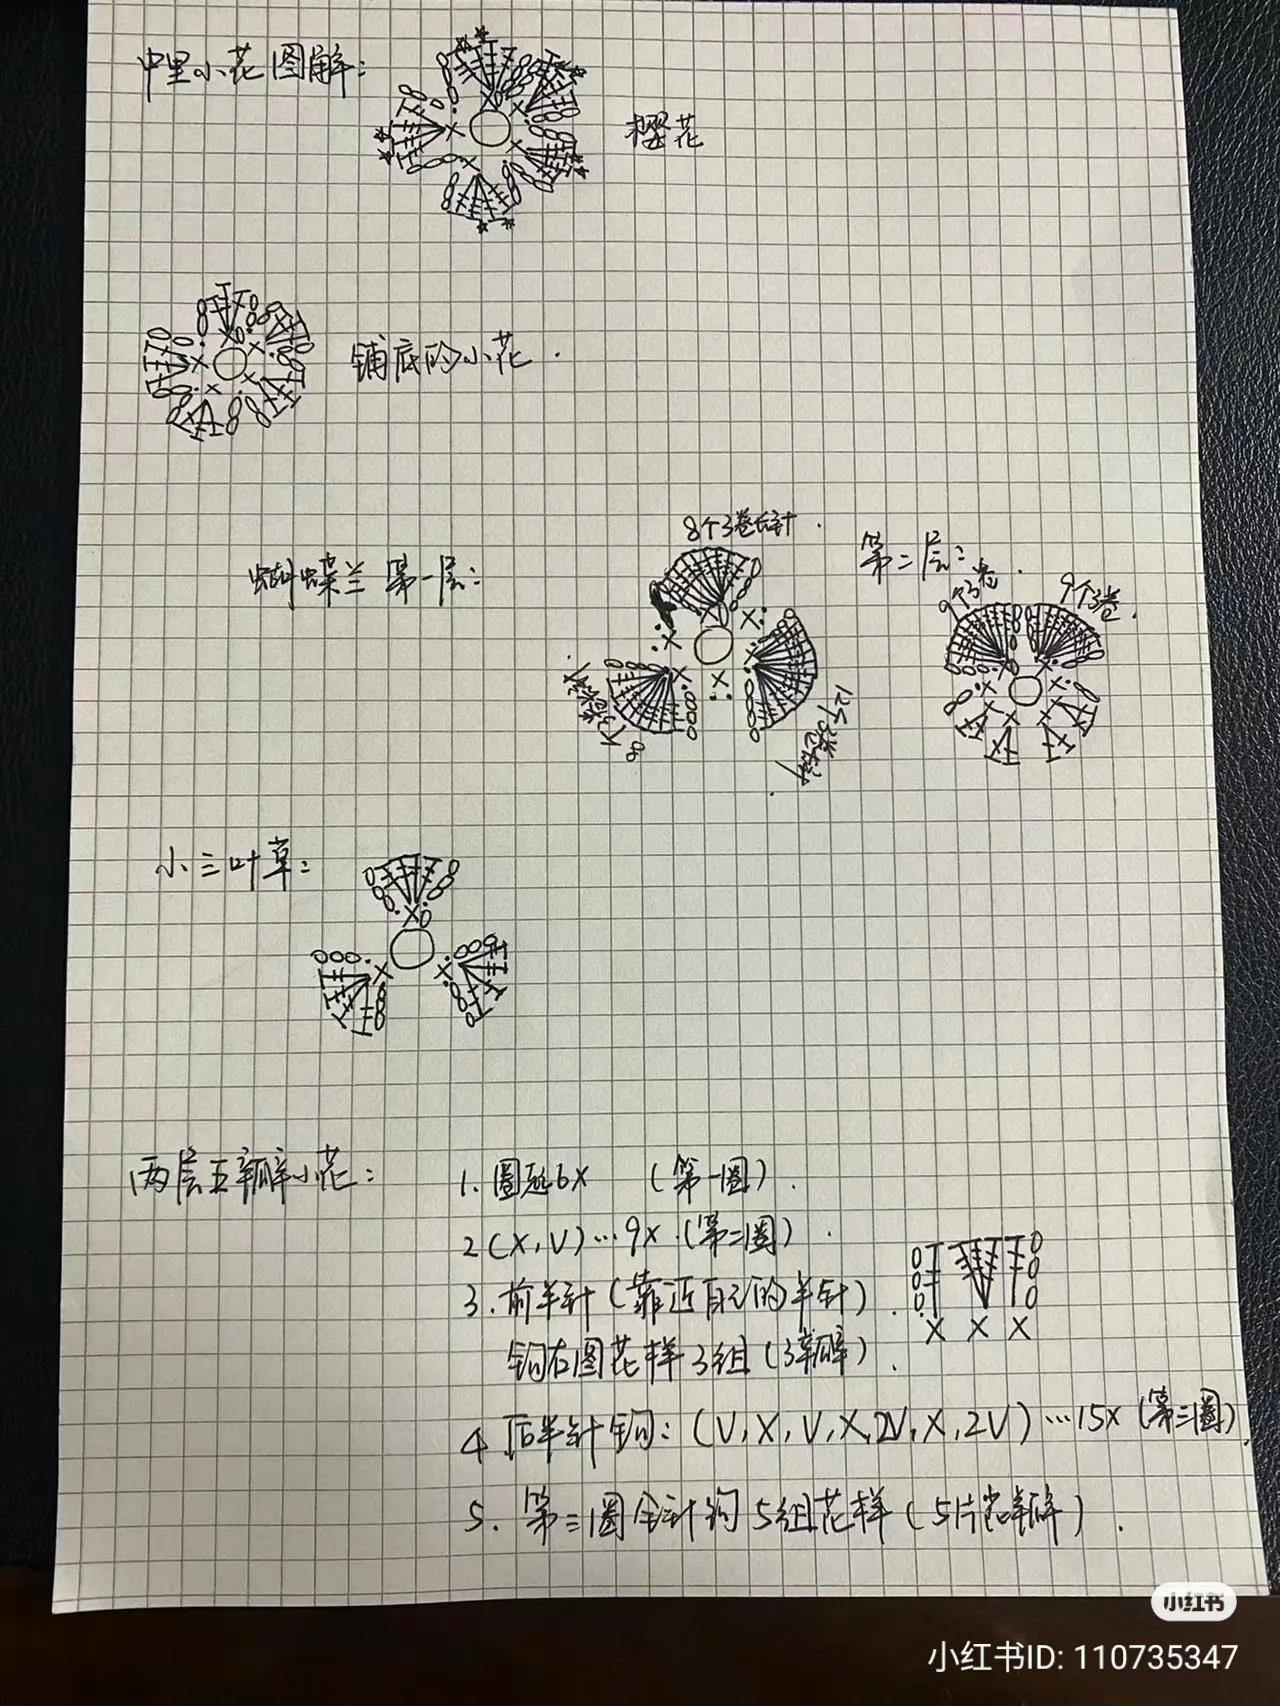 中里小花图解：
樱花
铺底的小花．
8个3卷长针．
第二层：
蝴蝶兰 第一层：
9个3卷．
9个3卷．
12个3卷长针．
小三叶草：
两层五瓣小花：
1. 圈起6X （第一圈）．
2 (X, V) … 9X．（第二圈）．
3. 前半针（靠近自己的半针）．
钩右图花样3组（3瓣）．
X X X
4 后半针钩：(V, X, V, X, 2V, X, 2V) … 15X（第三圈）．
5. 第三圈全针钩5组花样（5片花瓣）．
小红书
小红书ID: 110735347